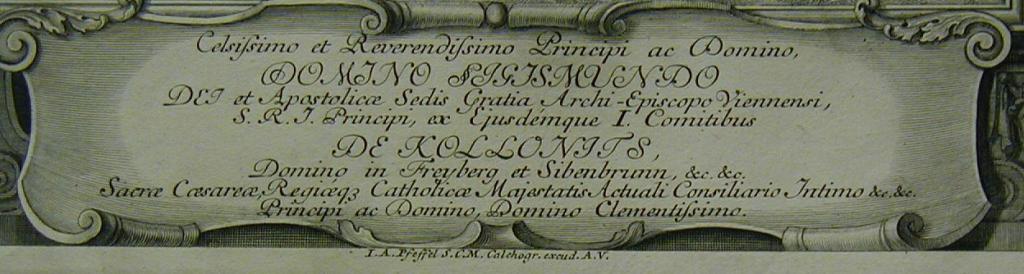 Celsiſsimo et Reverendiſsimo Principi ac Domino,
DOMINO SIGISMUNDO
DEI et Apostolicæ Sedis Gratia Archi-Episcopo Viennensi,
S. R. I. Principi, ex Ejusdemque I. Comitibus
DE KOLLONITS,
Domino in Freyberg et Sibenbrunn, &c. &c.
Sacræ Cæsareæ, Regiæqꝫ Catholicæ Majestatis Actuali Consiliario Intimo &c. &c.
Principi ac Domino, Domino Clementiſsimo.
I. A. Pfeffel S. C. M. Calchogr. excud. A. V.